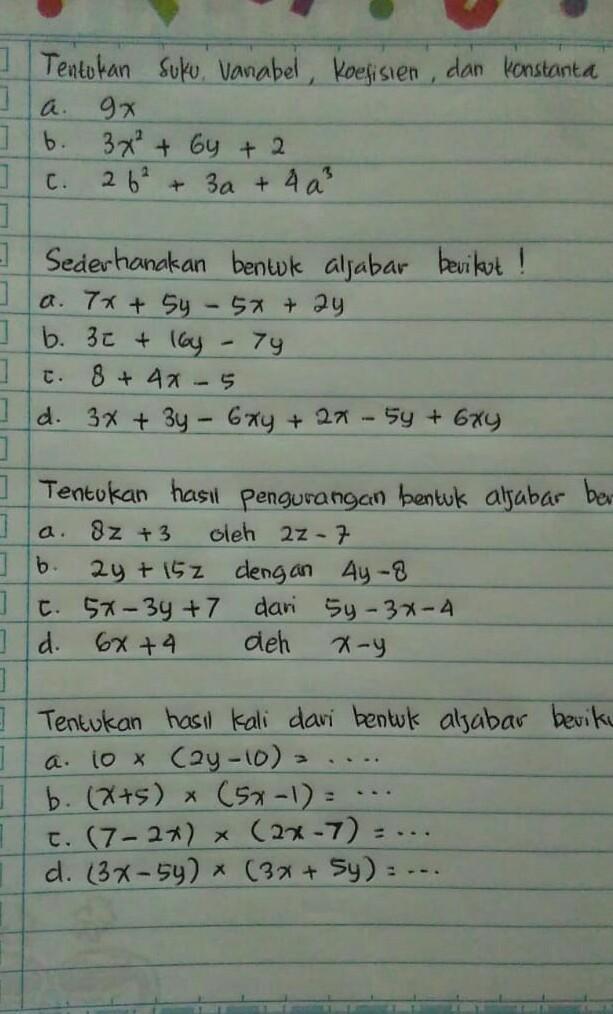 Tentukan suku, Variabel, koefisien, dan konstanta
a. 9x
b. 3x² + 6y + 2
c. 2b² + 3a + 4a³
Sederhanakan bentuk aljabar berikut!
a. 7x + 5y - 5x + 2y
b. 3c + 16y - 7y
c. 8 + 4x - 5
d. 3x + 3y - 6xy + 2x - 5y + 6xy
Tentukan hasil pengurangan bentuk aljabar ber
a. 8z + 3 oleh 2z - 7
b. 2y + 15z dengan 4y - 8
c. 5x - 3y + 7 dari 5y - 3x - 4
d. 6x + 4 oleh x - y
Tentukan hasil kali dari bentuk aljabar beriku
a. 10 × (2y - 10) = ....
b. (x+5) × (5x - 1) = ...
c. (7 - 2x) × (2x - 7) = ...
d. (3x - 5y) × (3x + 5y) = ...